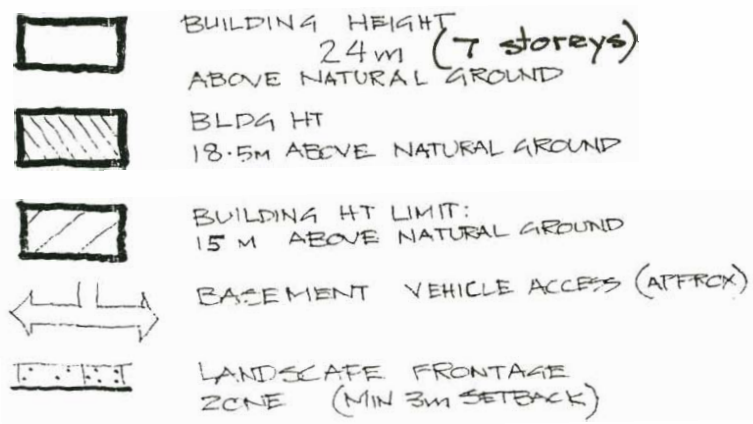 BUILDING HEIGHT
24m (7 storeys)
ABOVE NATURAL GROUND
BLDG HT
18.5M ABOVE NATURAL GROUND
BUILDING HT LIMIT:
15 M ABOVE NATURAL GROUND
BASEMENT VEHICLE ACCESS (APPROX)
LANDSCAPE FRONTAGE
ZONE (MIN 3m SETBACK)